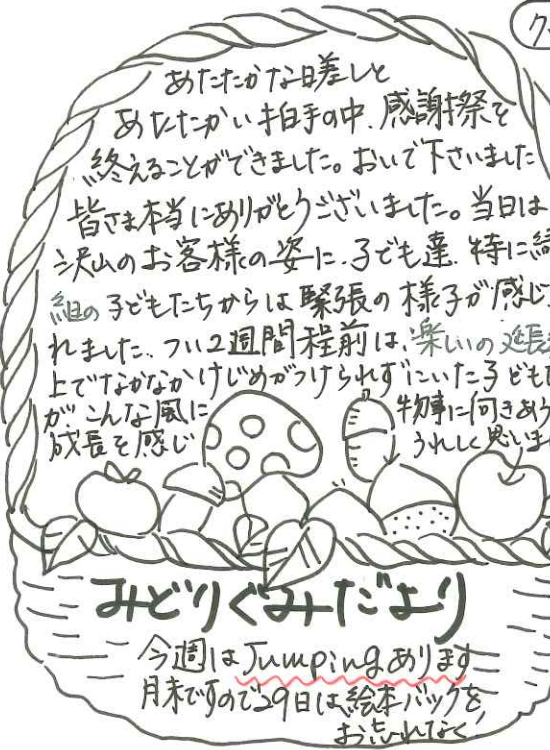 あたたかな日差しと
あたたかい拍手の中、感謝祭を
終えることができました。おいで下さいました
皆さま本当にありがとうございました。当日は
沢山のお客様の姿に、子ども達、特に緑
組の子どもたちからは緊張の様子が感じ
れました、つい2週間程前は、楽しいの延長
上でなかなかけじめがつけられずにいた子ども
が、こんな風に 物事に向きあう
成長を感じ うれしく思いま
みどりぐみだより
今週はJumpingあります
月末ですので29日は絵本バックを
お忘れなく!